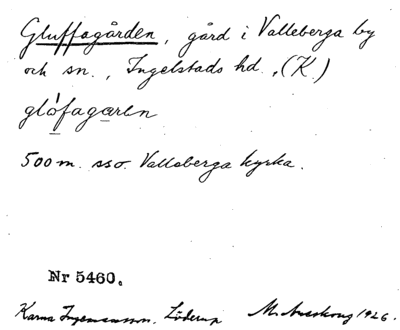 Gluffagården, gård i Valleberga by
och sn., Ingelstads hd., (K.)
glòfagaren
500 m. sso. Valleberga kyrka.
Nr 5460.
Karna Ingemansson, Löderup M. Areskoug 1926.